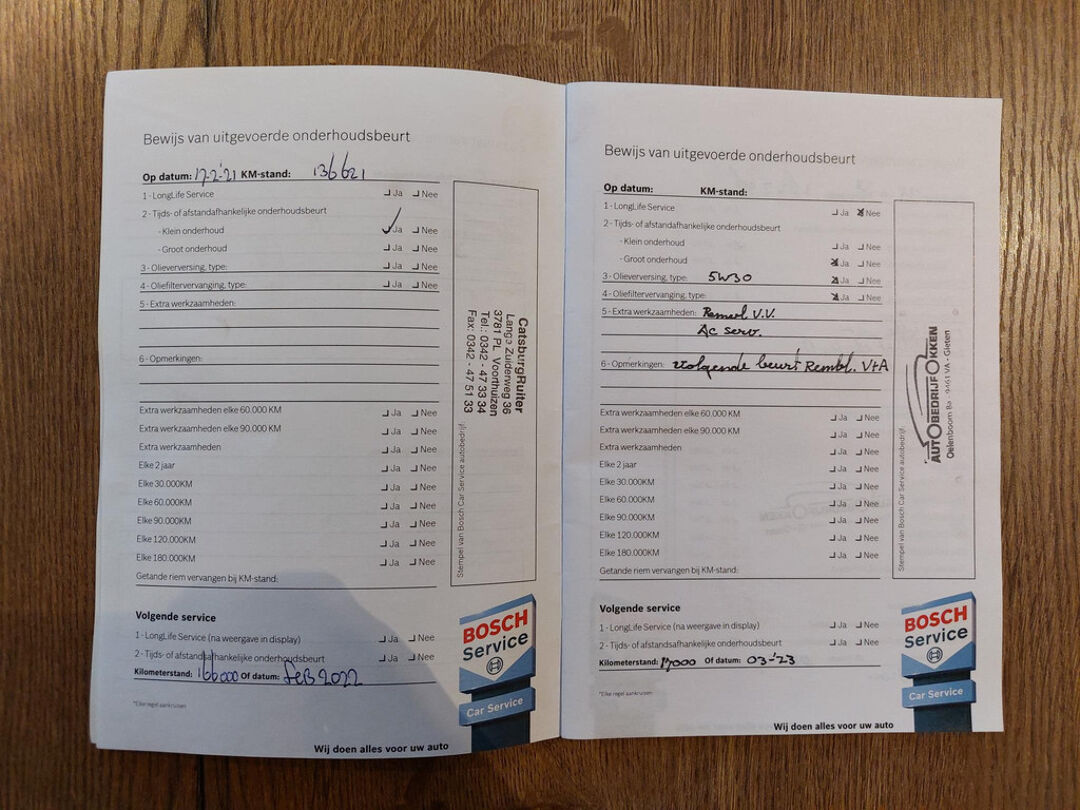 Bewijs van uitgevoerde onderhoudsbeurt
Op datum: 17-2-'21 KM-stand: 136621
1 - LongLife Service Ja Nee
2 - Tijds- of afstandafhankelijke onderhoudsbeurt
- Klein onderhoud Ja Nee
- Groot onderhoud Ja Nee
3 - Olieverversing, type: Ja Nee
4 - Oliefiltervervanging, type: Ja Nee
5 - Extra werkzaamheden:
6 - Opmerkingen:
Extra werkzaamheden elke 60.000 KM Ja Nee
Extra werkzaamheden elke 90.000 KM Ja Nee
Extra werkzaamheden Ja Nee
Elke 2 jaar Ja Nee
Elke 30.000KM Ja Nee
Elke 60.000KM Ja Nee
Elke 90.000KM Ja Nee
Elke 120.000KM Ja Nee
Elke 180.000KM Ja Nee
Getande riem vervangen bij KM-stand:
CatsburgRuiter
Lange Zuiderweg 36
3781 PL Voorthuizen
Tel.: 0342 - 47 33 34
Fax: 0342 - 47 51 33
Stempel van Bosch Car Service autobedrijf:
Volgende service
1 - LongLife Service (na weergave in display) Ja Nee
2 - Tijds- of afstandsafhankelijke onderhoudsbeurt Ja Nee
Kilometerstand: 166000 Of datum: feB 2022
*Elke regel aankruisen
BOSCH
Service
Car Service
Wij doen alles voor uw auto
Bewijs van uitgevoerde onderhoudsbeurt
Op datum: KM-stand:
1 - LongLife Service Ja Nee
2 - Tijds- of afstandafhankelijke onderhoudsbeurt
- Klein onderhoud Ja Nee
- Groot onderhoud Ja Nee
3 - Olieverversing, type: 5W30 Ja Nee
4 - Oliefiltervervanging, type: Ja Nee
5 - Extra werkzaamheden: V.V.
Ac serv.
6 - Opmerkingen: volgende beurt Rembl. V+A
Extra werkzaamheden elke 60.000 KM Ja Nee
Extra werkzaamheden elke 90.000 KM Ja Nee
Extra werkzaamheden Ja Nee
Elke 2 jaar Ja Nee
Elke 30.000KM Ja Nee
Elke 60.000KM Ja Nee
Elke 90.000KM Ja Nee
Elke 120.000KM Ja Nee
Elke 180.000KM Ja Nee
Getande riem vervangen bij KM-stand:
AUTOBEDRIJF OKKEN
Oelenboom 8a - 9461 VA - Gieten
Stempel van Bosch Car Service autobedrijf:
Volgende service
1 - LongLife Service (na weergave in display) Ja Nee
2 - Tijds- of afstandsafhankelijke onderhoudsbeurt Ja Nee
Kilometerstand: Of datum: 03-'23
*Elke regel aankruisen
BOSCH
Service
Car Service
Wij doen alles voor uw auto